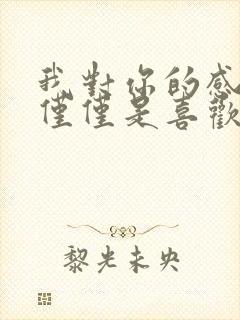 我對你的感
僅僅是喜歡
黎光未央